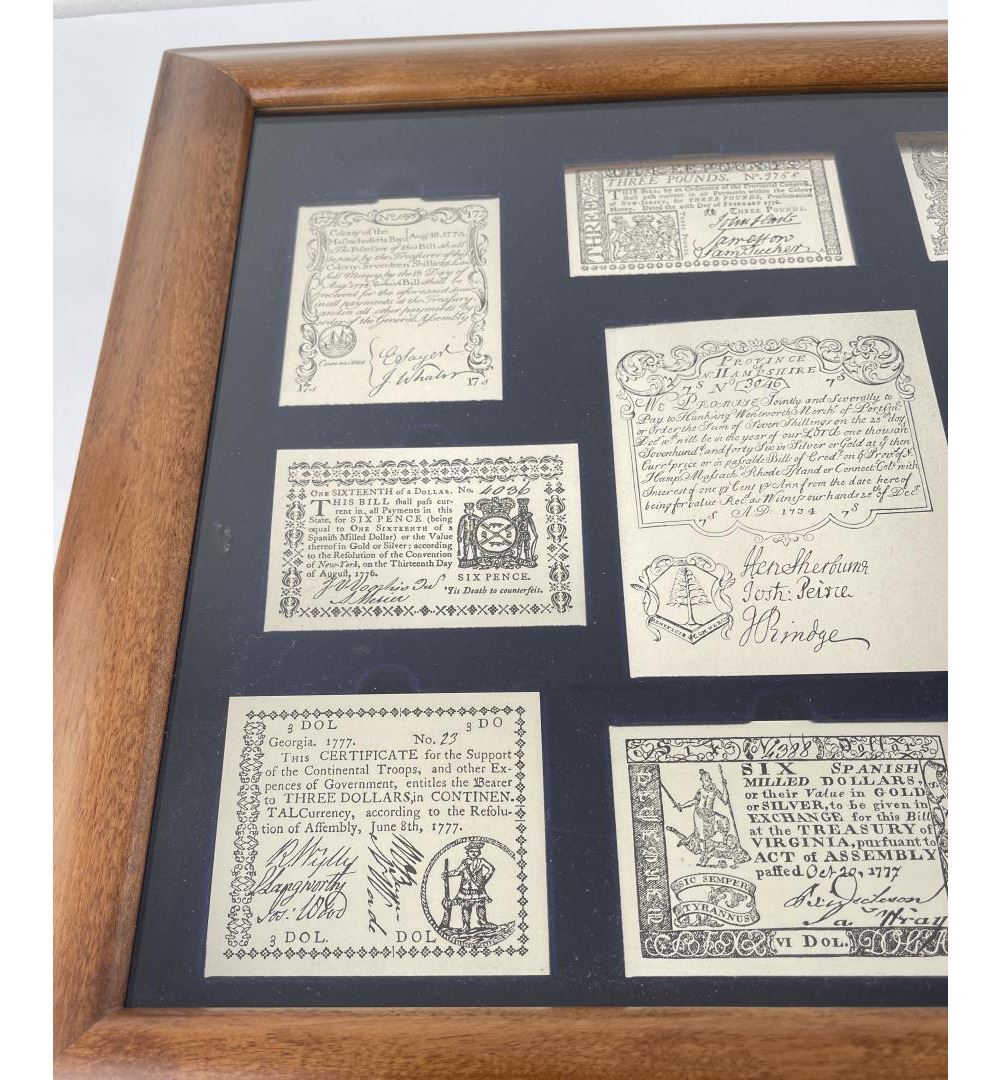 THREE POUNDS. No. 3755
THIS BILL, by an Ordinance of the Provincial Congress,
shall pass current in all Payments within the Colony
of New-Jersey, for THREE POUNDS, Proclamation
Money. Dated the 20th Day of FEBRUARY 1776.
THREE POUNDS.
THREE
John Hart
Sam Tucker
175
175
Colony of the
Massachusetts Bay Aug. 18. 1775
The Possessor of this Bill shall
be paid by the Treasurer of this
Colony, Seventeen Shillings
full Money by the 18 Day of
Aug. which Bill shall be
received for the aforesaid sum
in all payments at the Treasury
and in all other payments by
order of the General Assembly
Committee
E Sayer
J. Whaler
17s
17s
PROVINCE
OF
N HAMPSHIRE
7s No (3046) 7s
We PROMISE Jointly and Severally to
Pay to Hunking Wentworth Merch.t of Portsm.o
or Order the Sum of Seven Shillings on the 25th day
Dec.r w.c will be in the year of our LORD one thousand
Sevenhund and forty Six in Silver or Gold at ye then
Curr.t price or in passable Bills of Cred.t on ye Prov.s N.
Hamp.s Massach.s Rhode Island or Connect.t Col.s with
Interest of one p Cent p Ann from the date here of
being for value Rec.d as Witness our hands 25th of Dec.r
7s A.D: 1734 7s
Hen: Sherburne
Josh: Peirce
J Rindge
BENEFICIO COMMERCII
ONE SIXTEENTH of a DOLLAR. No. 4036
THIS BILL shall pass cur-
rent in, all Payments in this
State, for SIX PENCE (being
equal to ONE SIXTEENTH of a
Spanish Milled Dollar) or the Value
thereof in Gold or Silver; according
to the Resolution of the Convention
of New-York, on the Thirteenth Day
of August, 1776.
SIX PENCE.
'Tis Death to counterfeit.
3 DOL 3 DO
Georgia. 1777. No. 23
THIS CERTIFICATE for the Support
of the Continental Troops, and other Ex-
pences of Government, entitles the Bearer
to THREE DOLLARS, in CONTINEN-
TAL Currency, according to the Resolu-
tion of Assembly, June 8th, 1777.
R Wylly
Langworthy
Jas: Wood
3 DOL. DOL
Six No 1388 Dollars
SIX SPANISH
MILLED DOLLARS,
or their Value in GOLD
or SILVER, to be given in
EXCHANGE for this Bill
at the TREASURY of
VIRGINIA, pursuant to
ACT of ASSEMBLY
passed Oct 20, 1777
SIC SEMPER
TYRANNUS
B Dickson
Ja Wray
VI DOL.